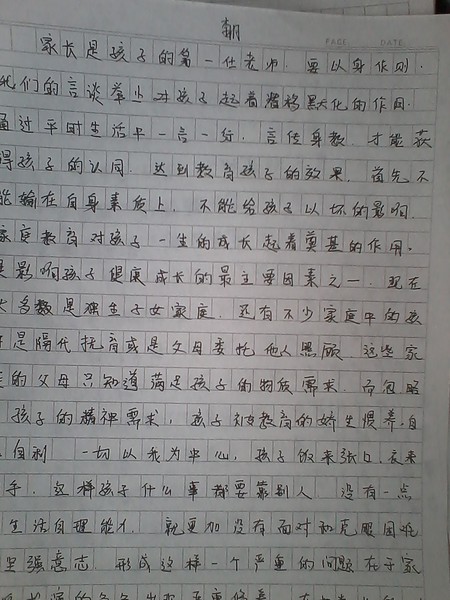 翻
PAGE DATE
家长是孩子的第一任老师. 要以身作则.
我们的言谈举止对孩子起着潜移默化的作用.
通过平时生活中一言一行, 言传身教, 才能获
得孩子的认同. 达到教育孩子的效果. 首先不
能输在自身素质上. 不能给孩子以坏的影响.
家庭教育对孩子一生的成长起着奠基的作用.
是影响孩子健康成长的最主要因素之一. 现在
大多数是独生子女家庭. 还有不少家庭中的孩
是隔代抚育或是父母委托他人照顾. 这些家
的父母只知道满足孩子的物质需求. 而忽略
孩子的精神需求, 孩子被教育的娇生惯养, 自
自利 一切以我为中心, 孩子饭来张口, 衣来
手. 这样孩子什么事都要靠别人 没有一点
生活自理能力. 就更加没有面对和克服困难
坚强意志. 形成这样一个严重的问题在于家